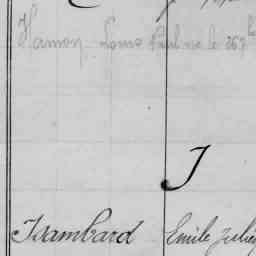 Hamon Louis Paul né le 26 7
J
Isambard Emile Julie